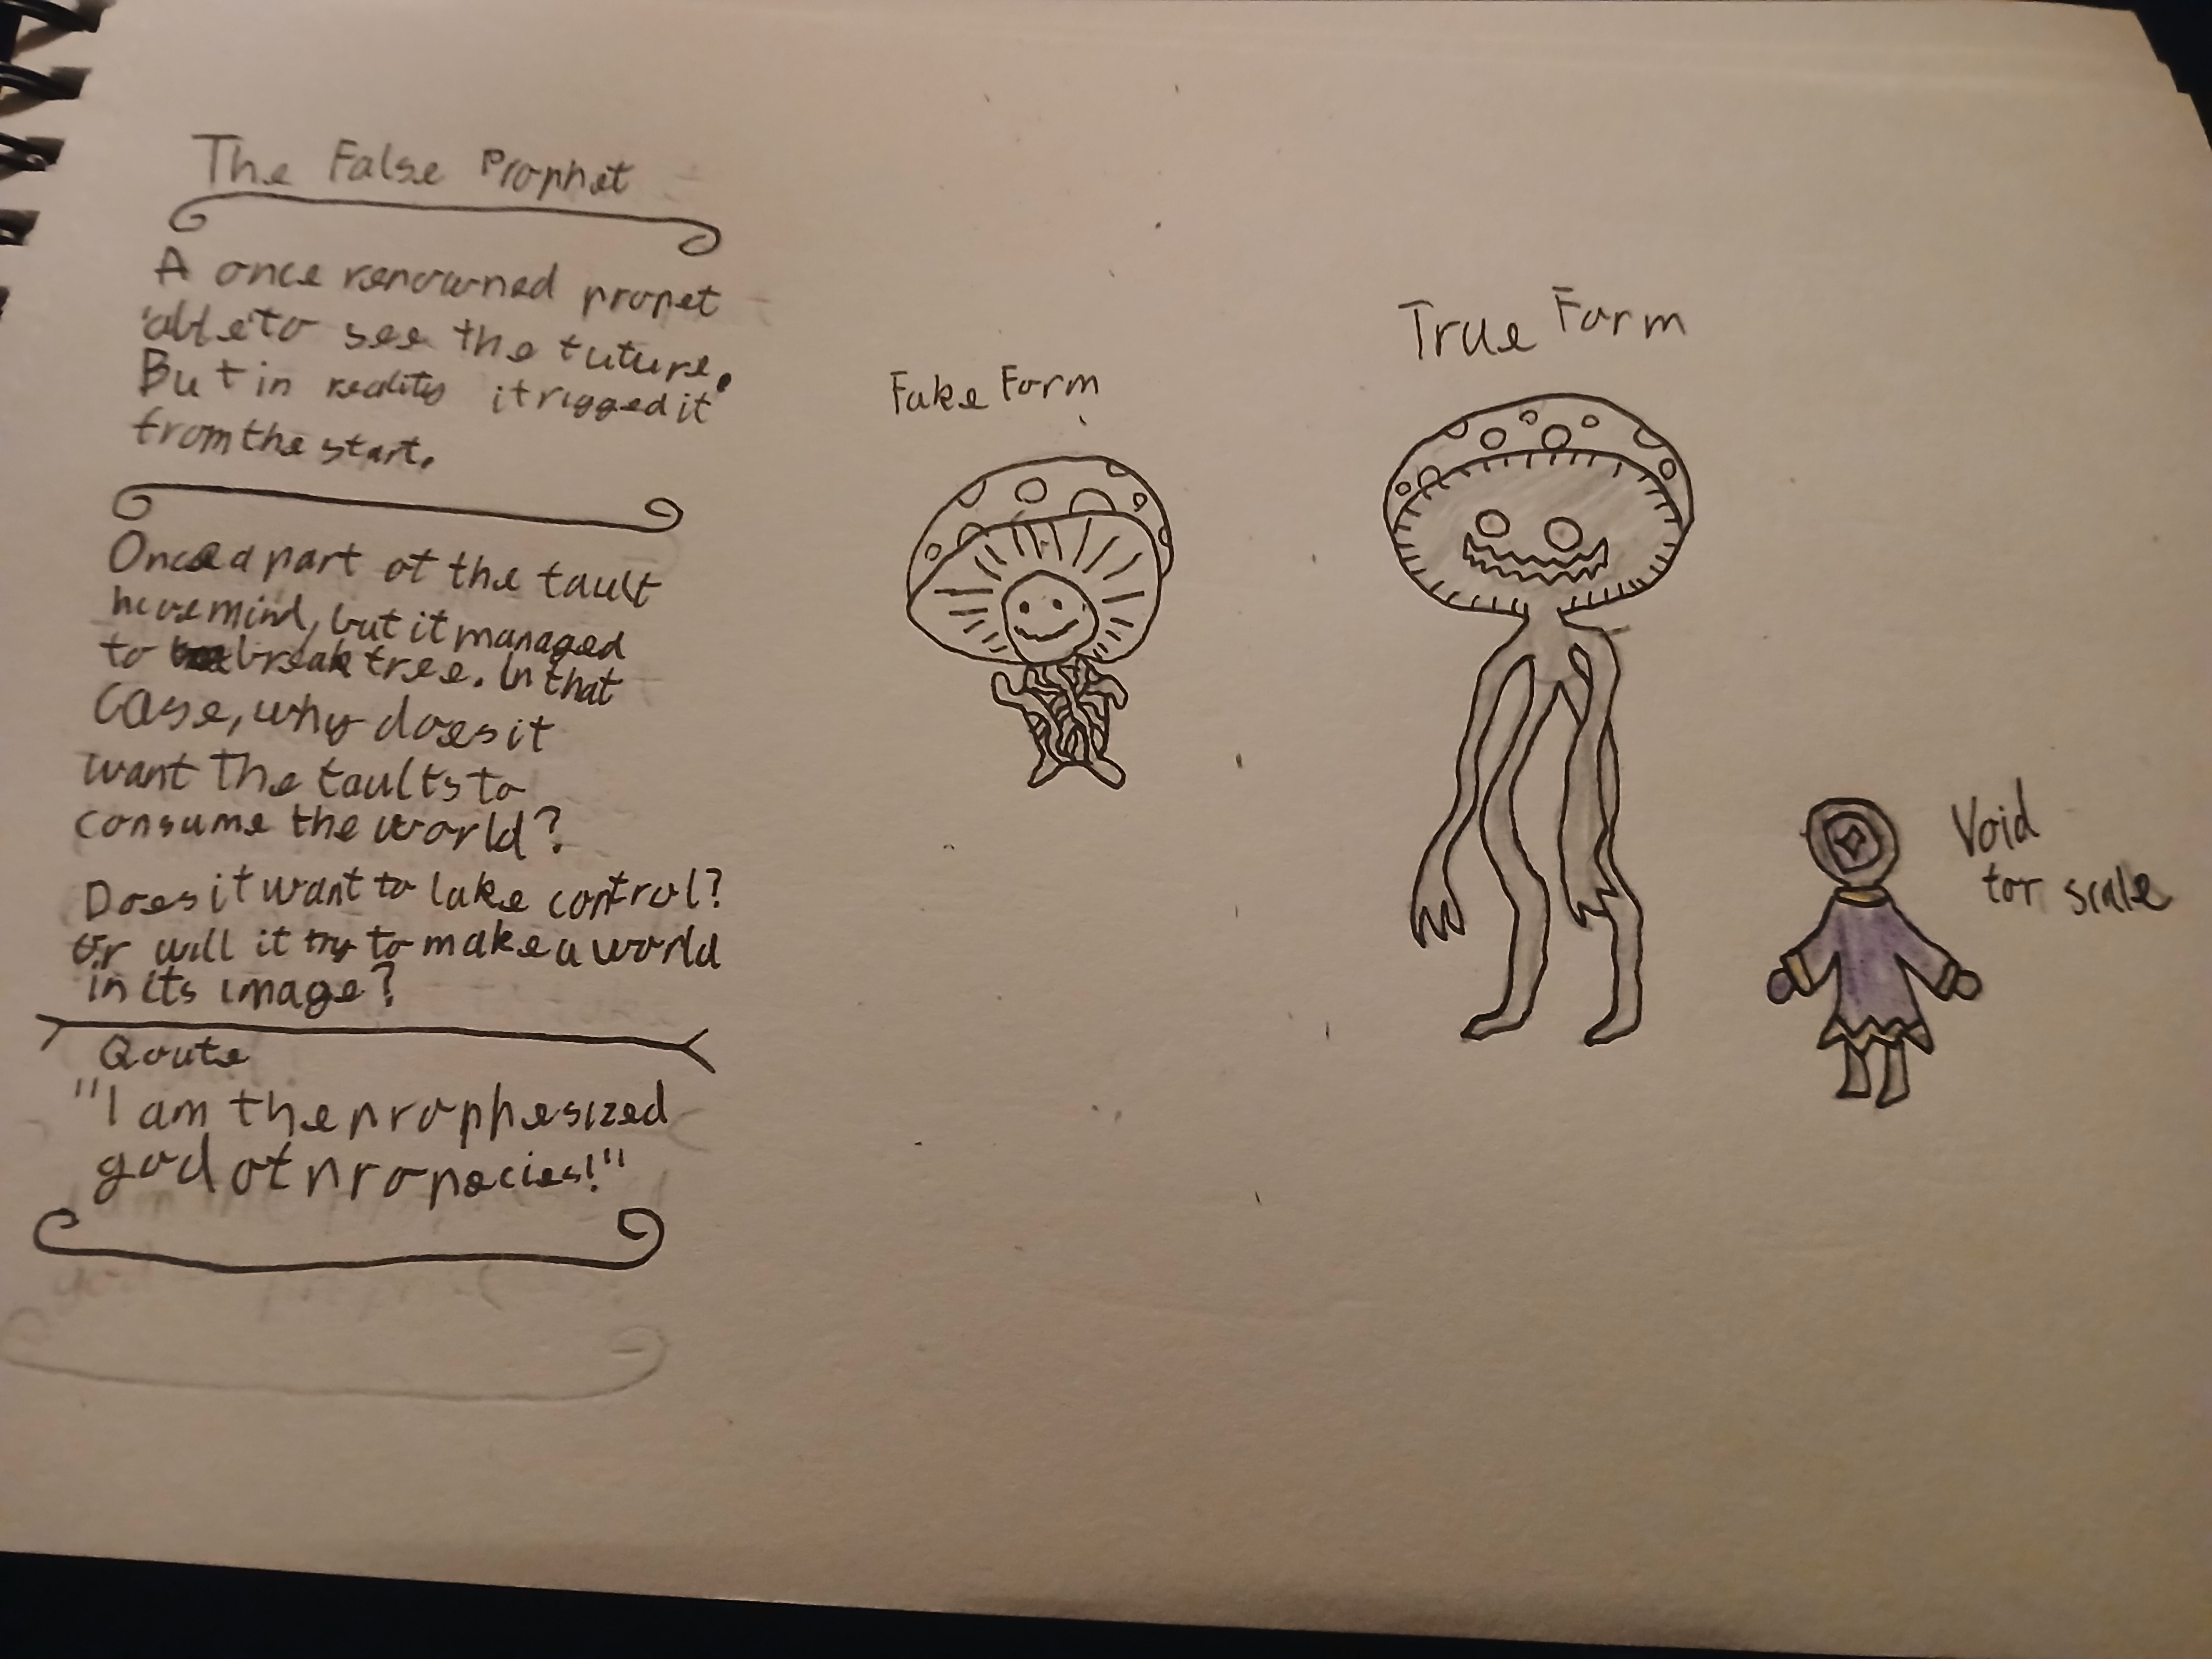 The False Prophet
A once renowned propet
'able' to see the future.
But in reality it rigged it
from the start.
Once a part of the fault
hivemind, but it managed
to break free. In that
case, why does it
want the faults to
consume the world?
Does it want to take control?
Or will it try to make a world
in its image?
Qoute
"I am the prophesized
god of propecies!"
Fake Form
True Form
Void
for scale